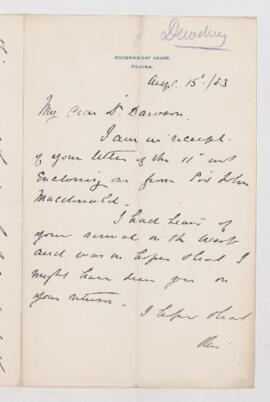 Dewdney
GOVERNMENT HOUSE,
REGINA.
Augt. 15th/83
My Dear Dr Dawson.
I am in receipt
of your letter of the 11th inst
Enclosing one from Sir John
Macdonald.
I had heard of
your arrival in the West
and was in hopes that I
might have seen you on
your return.
I hope that
this